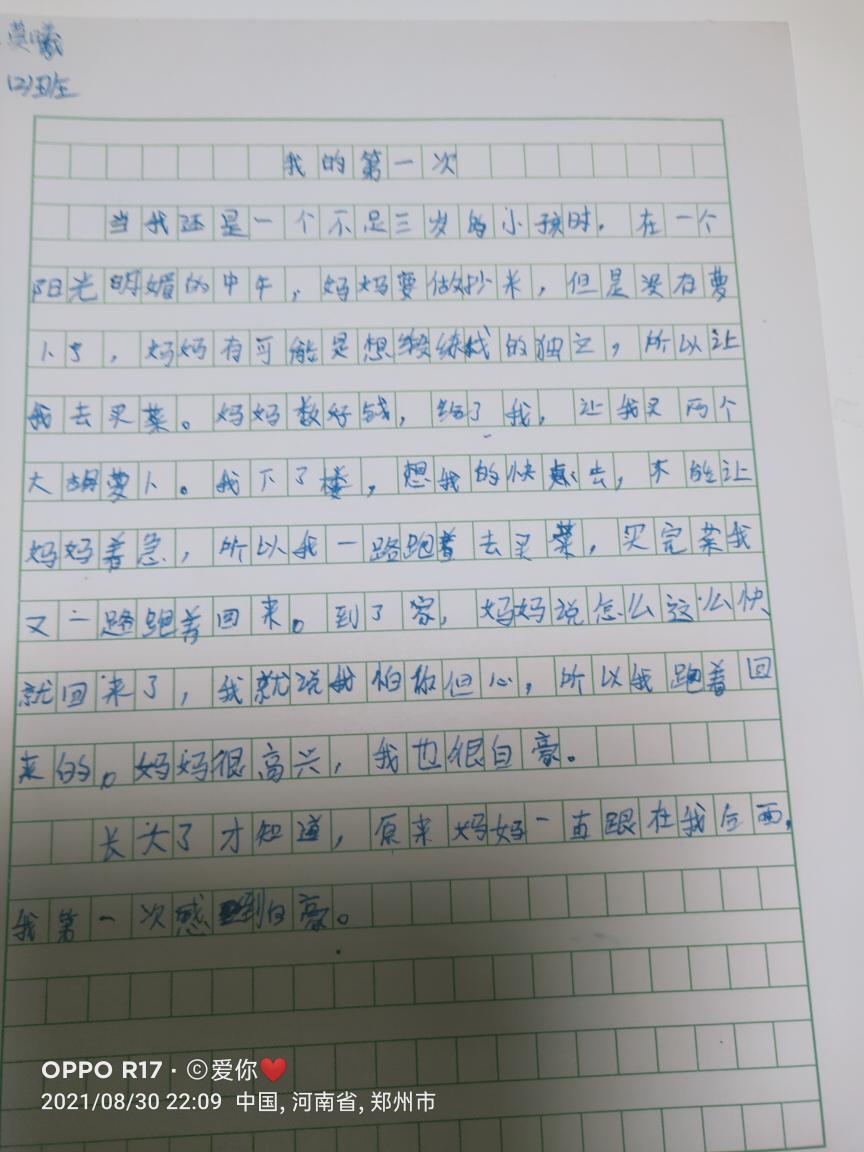 曦
(2)班
我的第一次
当我还是一个不足三岁的小孩时。在一个
阳光明媚的中午，妈妈要做抄米，但是没有萝
卜了，妈妈有可能是想缎练我的独立，所以让
我去买菜。妈妈数好钱，给了我，让我买两个
大胡萝卜。我下了楼，想我的快点去，不能让
妈妈着急，所以我一路跑着去买菜，买完菜我
又一路跑着回来。到了家，妈妈说怎么这么快
就回来了，我就说我怕你但心，所以我跑着回
来的。妈妈很高兴，我也很自豪。
长大了才知道，原来妈妈一直跟在我后面，
我第一次感到自豪。
OPPO R17 · ©爱你❤️
2021/08/30 22:09 中国, 河南省, 郑州市